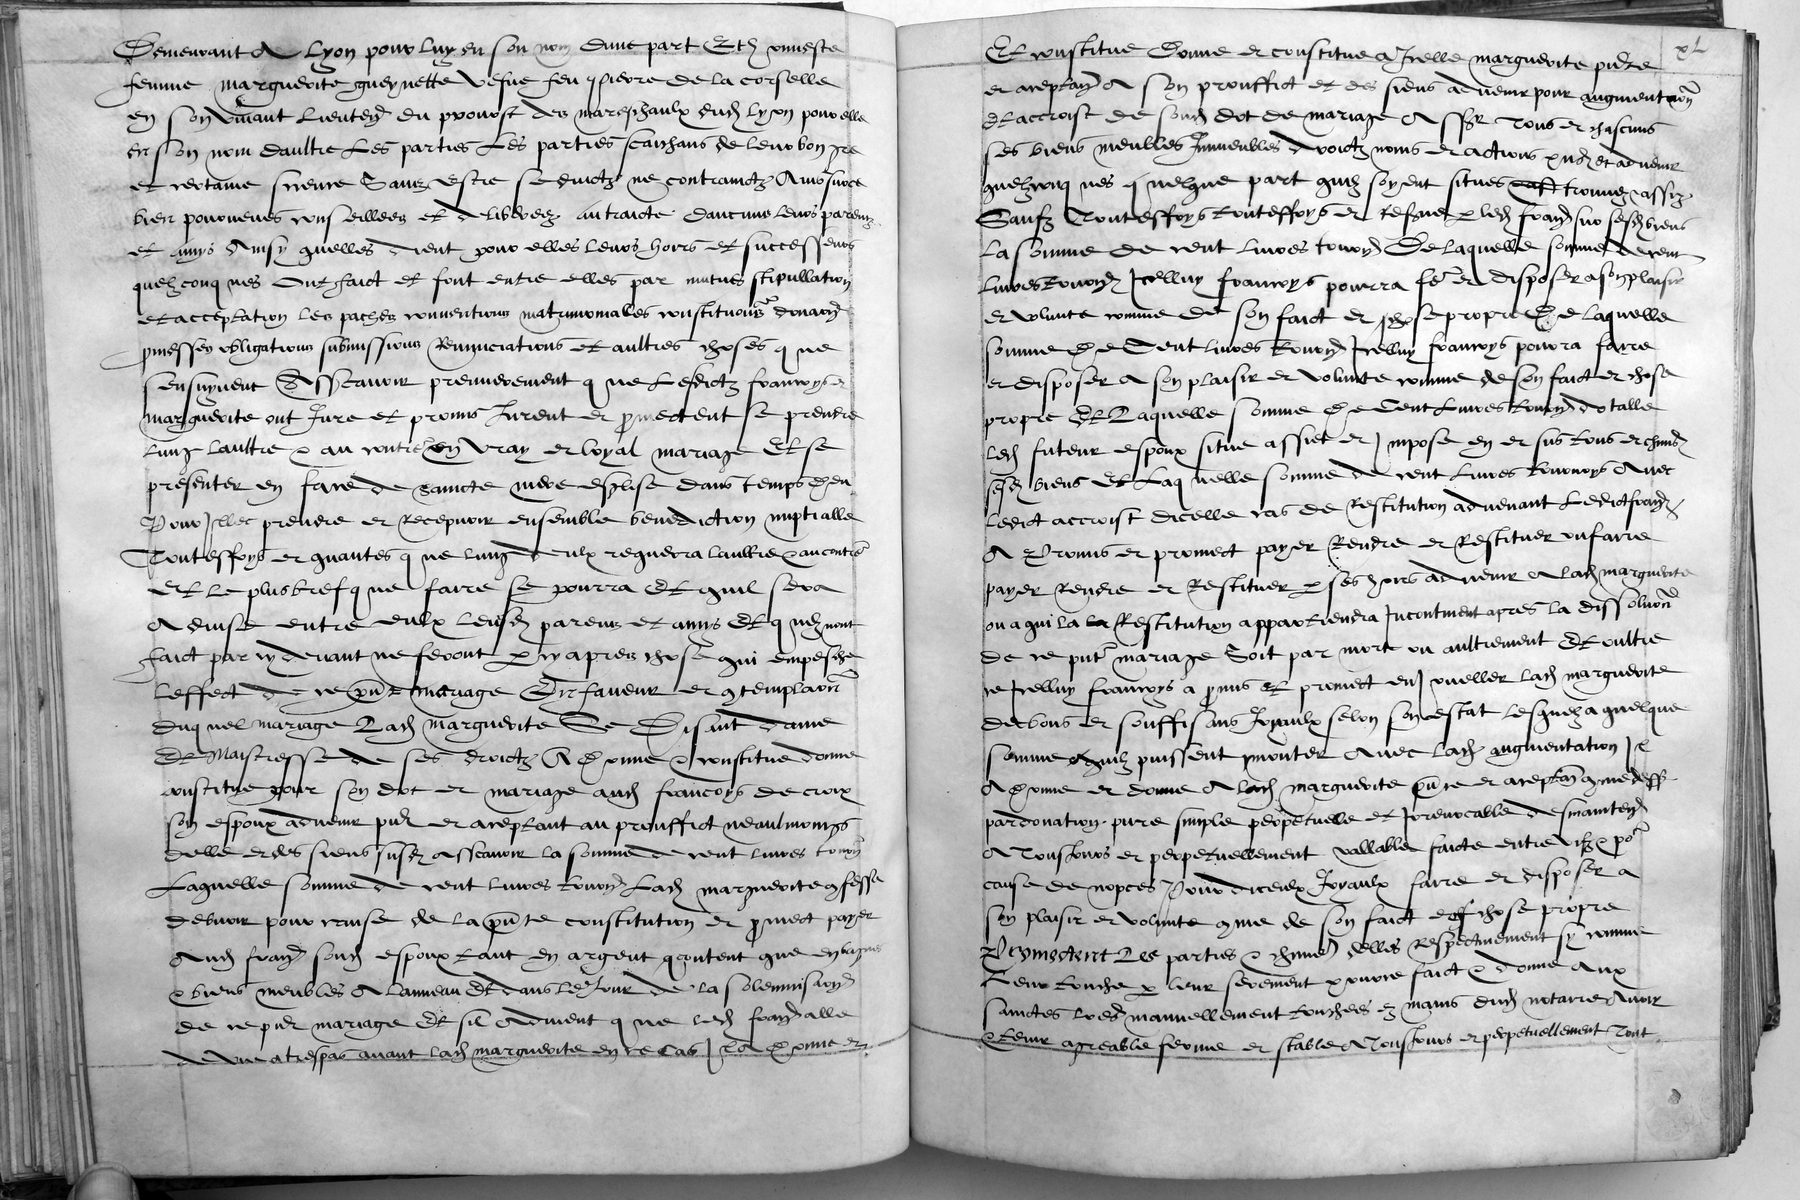 Demeurant A Lyon pour luy en son nom dune part Et honneste
femme marguerite gueynette vefue feu pierre de la corselle
en son vivant Lieuten du prevost des mareschaulx dud Lyon pour elle
en son nom daultre Les parties Les parties saichans de leur bon gre
et certaine science Sans estre seduictz ne contrainctz Ains sur ce
bien pourveues conseillees et deliberez au traicte daucuns leurs parens
et amys Ainsy quelles dient pour elles leurs hoirs et successeurs
quelzconques Ont faict et font entre elles par mutue stipullation
et acceptation les paches conventions matrimoniales constitutions donaons
pmesses obligations submissions Renunciations et aultres choses que
sensuyvent Asscavoir premierement que Lesdictz francoys et
marguerite ont Jure et promis Jurent et pmectent se prendre
lung laultre & au contre en vray et loyal mariage Et se
presenter en face de saincte mere esglise dans temps deu
Pour Illec prendre et recepvoir ensemble benediction nuptialle
Toutesfoys et quantes que lung deulx requerra laultre & au contre
Et le plus bref que faire se pourra Et quil sera
Advise entre eulx leursd parens et amys Et quilz nont
faict par cy devant ne feront p cy apres chose qui empesche
leffect de ce pnt mariage En faveur et gtemplaon
duquel mariage Lad marguerite Se Disant dame
Et Maistresse de ses droictz A donne & constitue donne
constitue pour son dot et mariage aud francoys de croix
son espoux advenir pnt et aceptant au prouffict neaulmoings
delle et des siens susd asscavoir la somme de cent livres tourn
Laquelle somme de cent livres tourn Lad marguerite gfesse
debvoir pour cause de la pnte constitution et pmect payer
Aud franc sond espoux tant en argent content que en bagues
& biens meubles A lanneau Et dans le Jour de la solempnisaon
de ce pnt mariage Et sil Advient que led franc alle
de vie a trespas avant lad marguerite en ce cas Il a donne et
xl
Et constitue Donne et constitue a Icelle marguerite pnte
et aceptan A son prouffict et des siens advenir pour augmentaon
Et accroist de sond dot de mariage Assr Tous et chascuns
ses biens meubles Immeubles droictz noms et actions pns et advenir
quelzconques quelque part quilz soyent situes trouvez assiz
Saufz Toutesfoys toutesfoys et Reserve p led franc sur sesd biens
La somme de cent livres tourn De laquelle somme de cent
livres tourn Icelluy francoys pourra fe et disposer a son plaisir
et volunte comme de son faict et chose propre De laquelle
somme De Cent livres tourn Icelluy francoys pourra faire
et disposer A son plaisir et volunte comme de son faict et chose
propre Et Laquelle somme De Cent Livres tourn dotalle
led futeur espoux situe assiet et Impose en et sus tous et chuns
sesd biens Et Laquelle somme de cent livres tournoys Avec
ledict accroist dicelle cas de Restitution advenant Ledict franc
A Promis et promect payer Rendre et Restituer ou faire
payer Rendre et Restituer p ses hoirs advenir A lad marguerite
ou a qui la la Restitution appartiendra Incontinent apres la dissoluon
de ce pnt mariage Soit par mort ou aultrement Et oultre
ce Icelluy francoys a pmis Et promect en Joueller lad marguerite
de bons et souffisans Joyaulx selon son estat lesquelz a quelque
somme quilz puissent monter Avec lad augmentation Il
A Donne et donne A lad marguerite pnte et aceptan gme dess
par donation pure simple perpetuelle et Irrevocable des mainten
A Tousjours et perpetuellement vallable faicte entre vifz & po
cause de nopces Pour diceulx Joyaulx faire et disposer a
son plaisir et volunte gme de son faict et chose propre
Promectent Les parties & chune delles Respectivement sy comme
Leur touche p leur serement p ouvre faict & donne Aux
sainctes evangilles manuellement touchees ez mains dud notaire Avoir
& tenir agreable ferme et stable A Tousjours et perpetuellement Tout